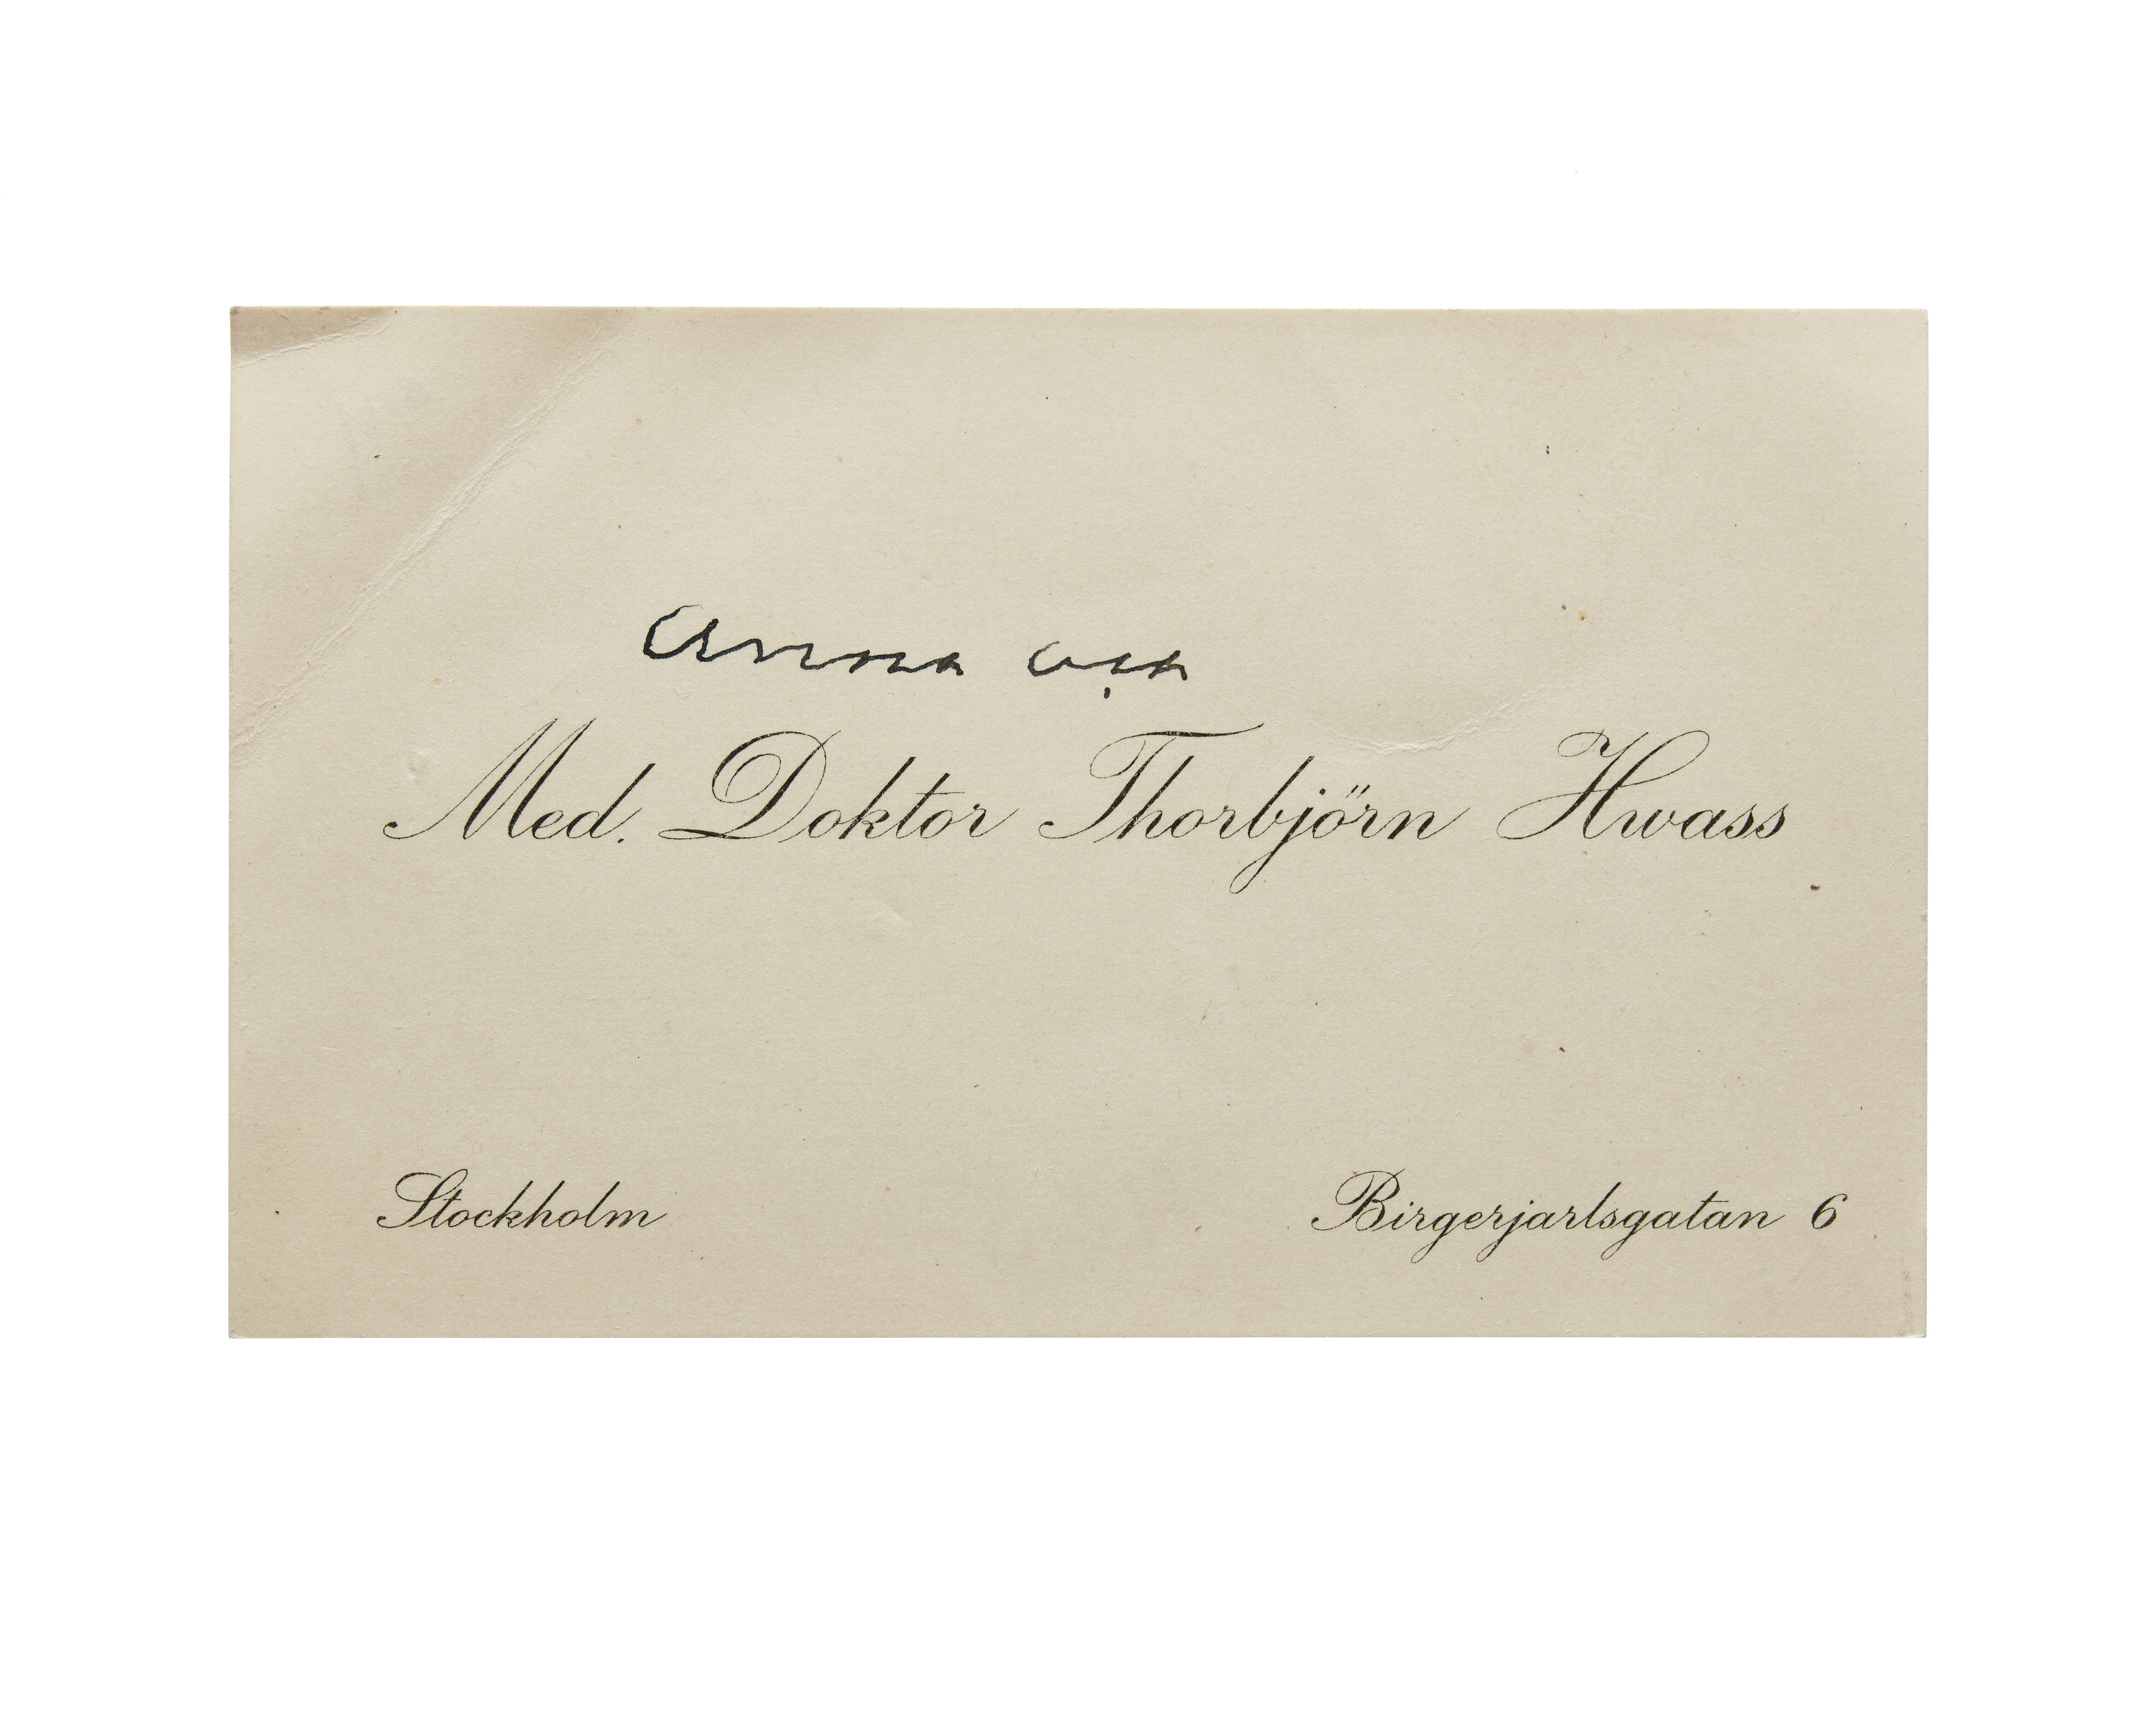 Anna och
Med. Doktor Thorbjörn Hwass
Stockholm
Birgerjarlsgatan 6